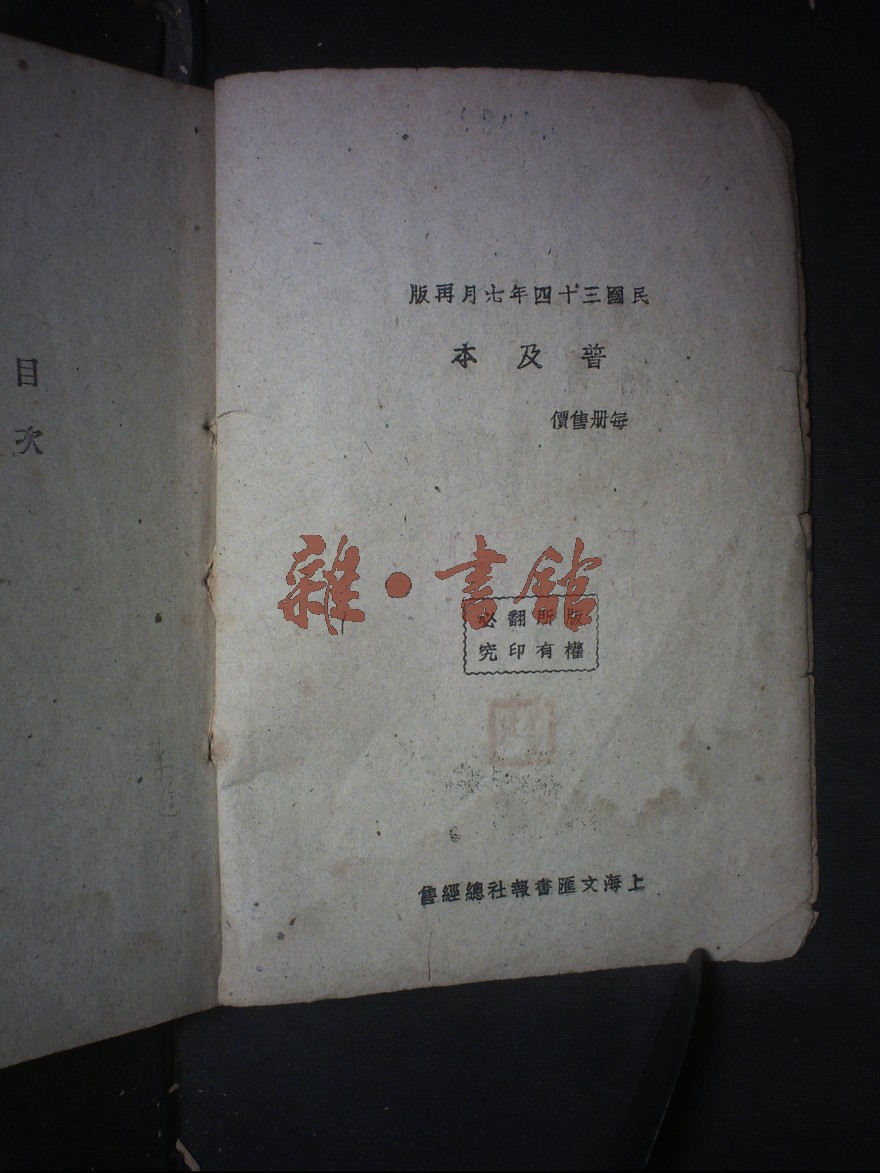 民國三十四年七月再版
普及本
每册售價
雜·書館
版權
所有
翻印
必究
上海文匯書報社總經售
目次